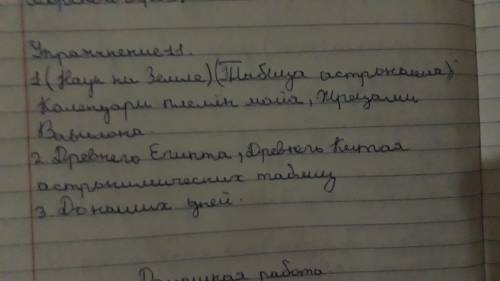 Упражнение 11.
1 (Наук на Земле) (Таблица астрономиа)
Календари племён майа, Жрецами
Вавилона
2 Древнего Египта, Древнего Китая
астрономических таблиц
3 До наших дней.
Домашная работа